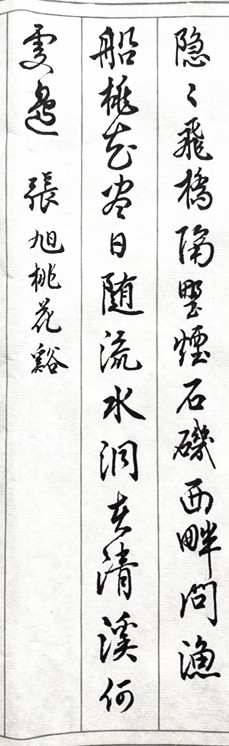 隐〻飛橋隔野煙石磯西畔问漁
船桃花尽日随流水洞在清溪何
處邊 張旭桃花谿